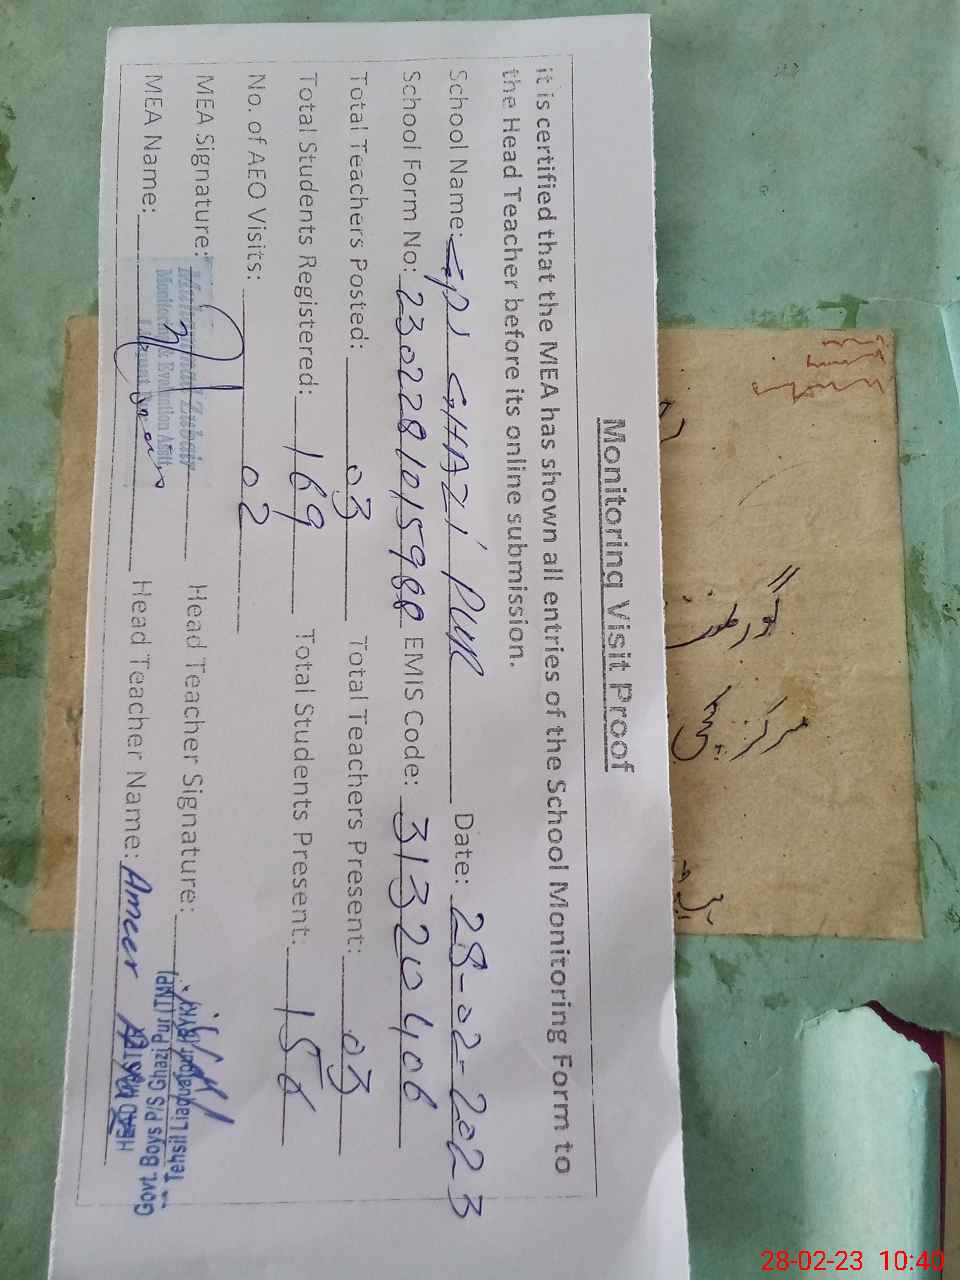 Monitoring Visit Proof
it is certified that the MEA has shown all entries of the School Monitoring Form to
the Head Teacher before its online submission.
School Name: GPS GHAZI PUR Date: 28-02-2023
School Form No: 230228101598 EMIS Code: 31320406
Total Teachers Posted: 03 Total Teachers Present: 03
Total Students Registered: 169 Total Students Present: 156
No. of AEO Visits: 02
MEA Signature: Head Teacher Signature:
MEA Name: Head Teacher Name: Ameer
Muhammad Zubair
Monitoring & Evaluation Asstt
HEAD
Govt. Boys P/S Ghazi Pur (TMP)
Tehsil Liaquatpur
مرکز
28-02-23 10:40